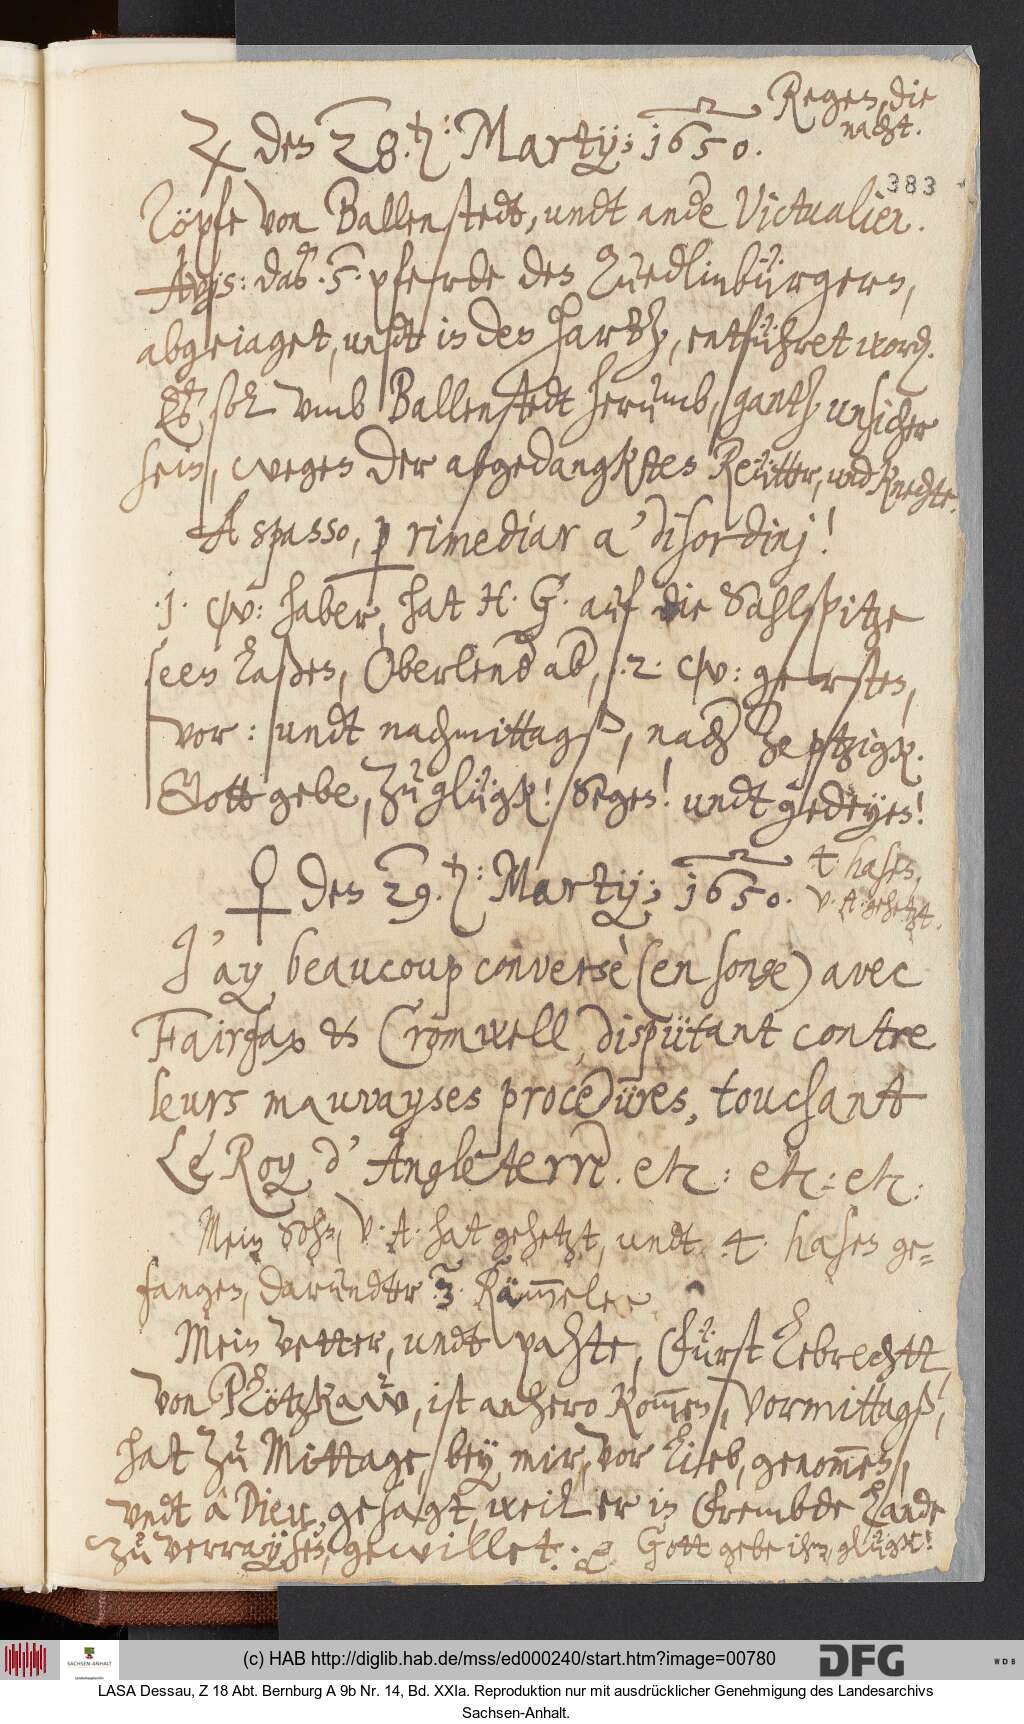 Regen, die
nacht.
♃ den 28.ten: Martij; 1650.
383
Töpfe von Ballenstedt, undt andere Victualien.
Avis: daß .5. pferde den Quedlinbürgern,
abgeiaget, undt in den Hartz, entführet worden.
Es soll umb Ballenstedt herumb, gantz unsicher
sein, wegen der abgedangkten Reütter, und Knechte.
A spasso, per rimediàr a' disordinj!
.1. {Wispel}: haber, hat H. G. auf die Sahlspitze
seen laßen, Oberlender, .2. {Wispel}: gersten,
vor: undt nachmittagß, nach Zeptzigk.
Gott gebe, zu glügk! Segen! undt gedeyen!
♀ den 29.ten: Martij; 1650.
4 hasen,
V. A. gehetzt.
J'ay beaucoup conversè (en songe) avec
Fairfax et Cromwell, dispütant contre
leurs mauvayses procedüres, touchant
Le Roy d'Angleterre. etc: etc: etc:
Mein Sohn, V. A. hat gehetzt, undt .4. hasen ge-
fangen, darundter .3. Rammeler
Mein vetter, undt pahte, Fürst Lebrecht,
von Plötzkaw, ist anhero kommen, Vormittagß,
hat zu Mittage, bey mir, vor lieb, genommen,
undt â Dieu, gesagt, weil er in frembde Lande
zu verraysen, gewillet. Gott gebe ihm, glügk!
(c) HAB http://diglib.hab.de/mss/ed000240/start.htm?image=00780
SACHSEN-ANHALT
DFG
WDB
LASA Dessau, Z 18 Abt. Bernburg A 9b Nr. 14, Bd. XXIa. Reproduktion nur mit ausdrücklicher Genehmigung des Landesarchivs
Sachsen-Anhalt.